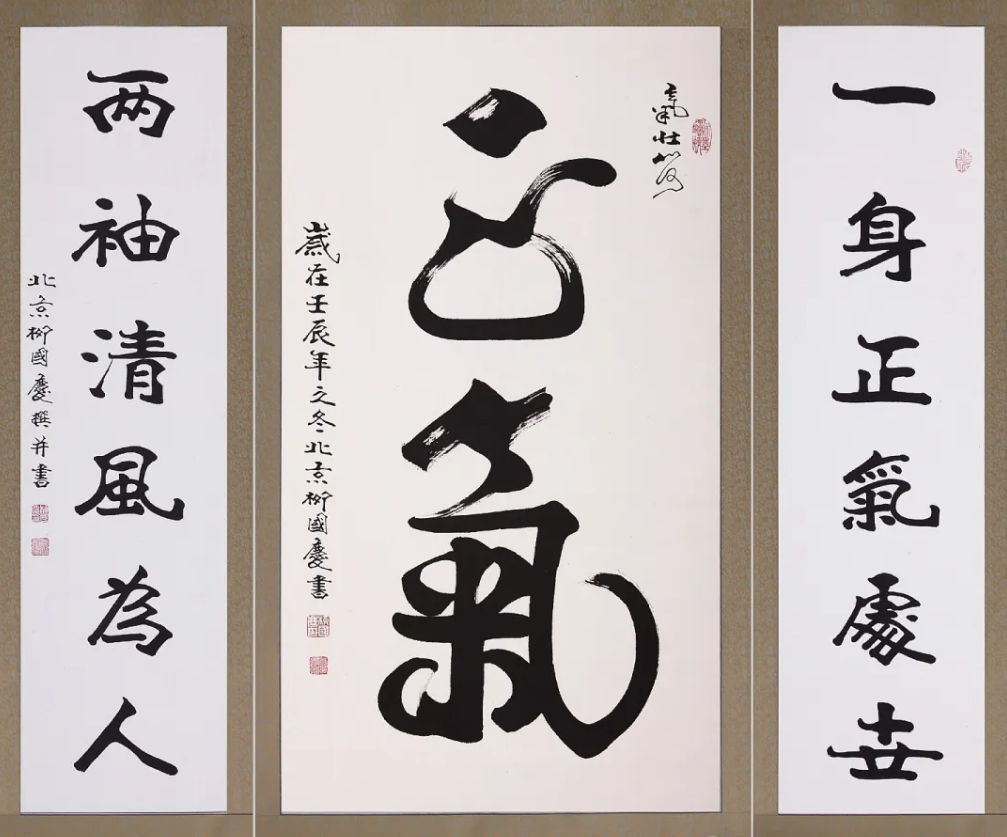 一身正氣處世
氣壯山河
正氣
歲在壬辰年之冬北京柳國慶書
两袖清風為人
北京柳國慶撰并書